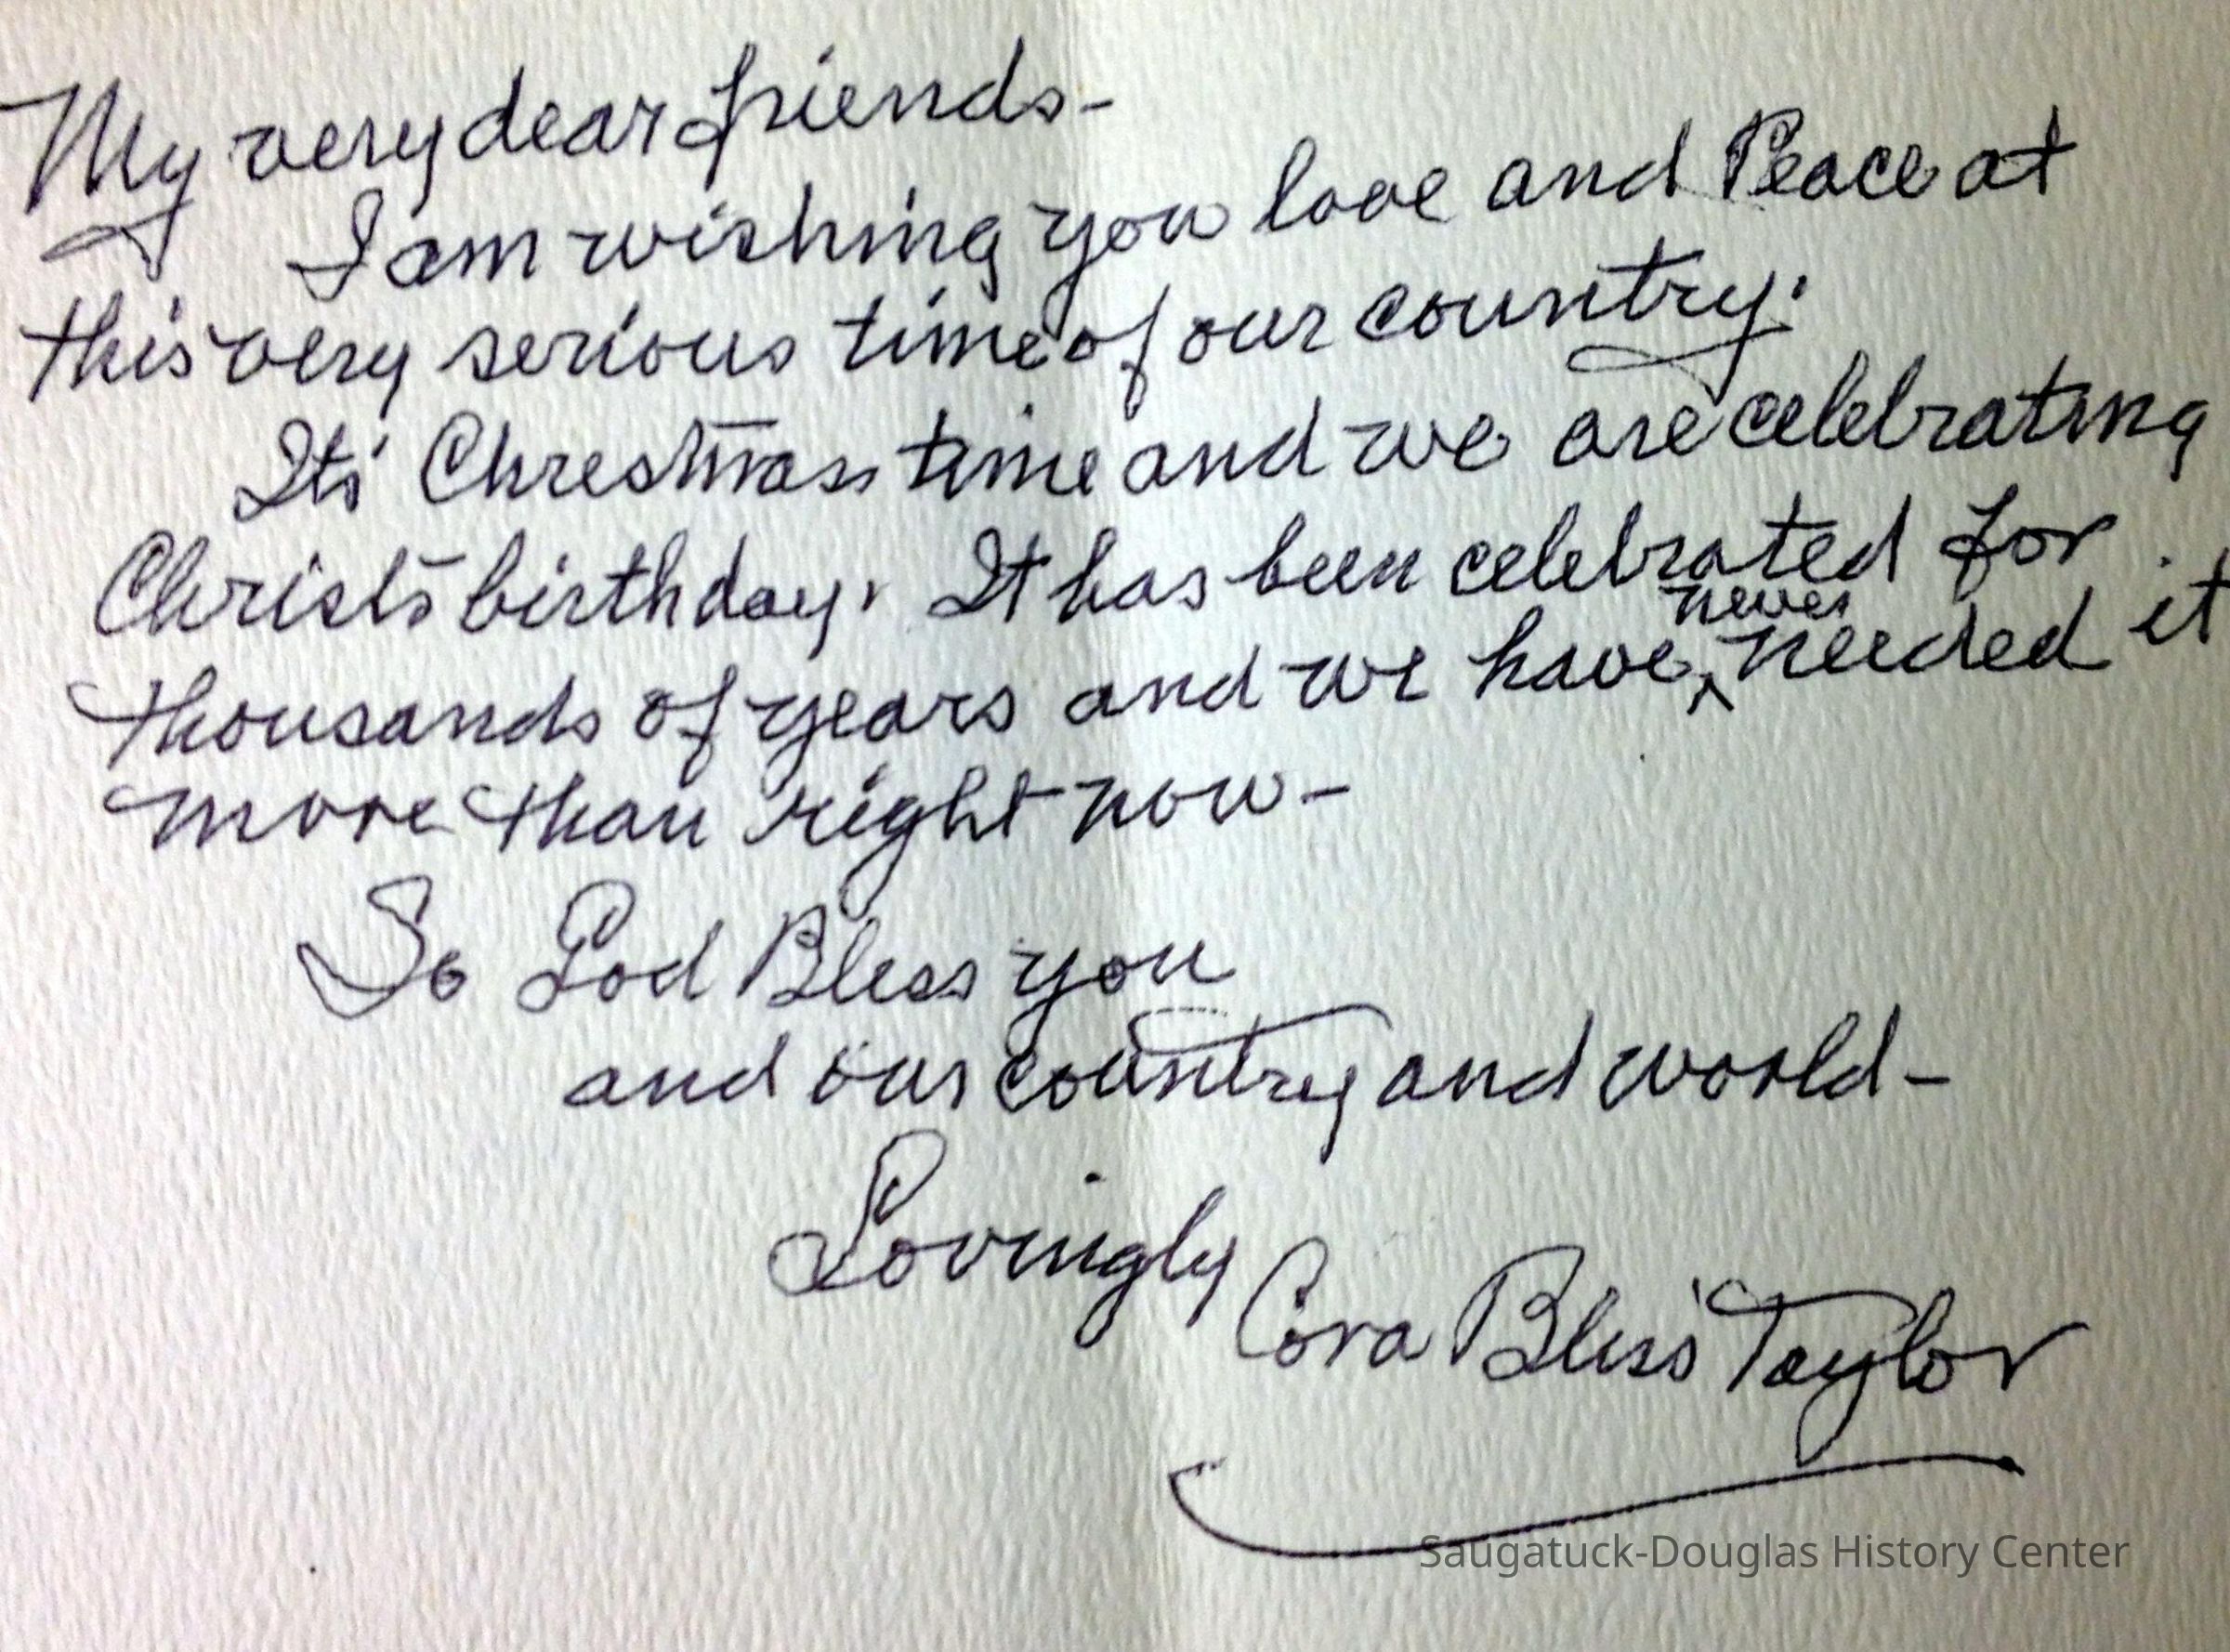 My very dear friends-
I am wishing you love and Peace at
this very serious time of our country.
Its' Christmas time and we are celebrating
Christ's birthday. It has been celebrated for
thousands of years and we have never needed it
more than right now-
So God Bless you
and our country and world-
Lovingly
Cora Bliss Taylor
Saugatuck-Douglas History Center